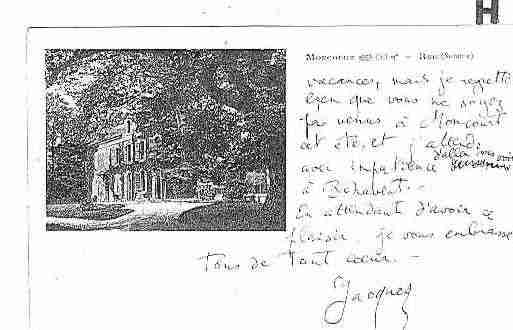 H
Moncourt - Rue (Somme)
vacances, mais je regrette
bien que vous ne soyez
pas venus à Moncourt
cet été, et j'attends
avec impatience d'aller vous voir
à
En attendant d'avoir ce
plaisir, je vous embrasse
Tous de tout cœur. -
Jacques